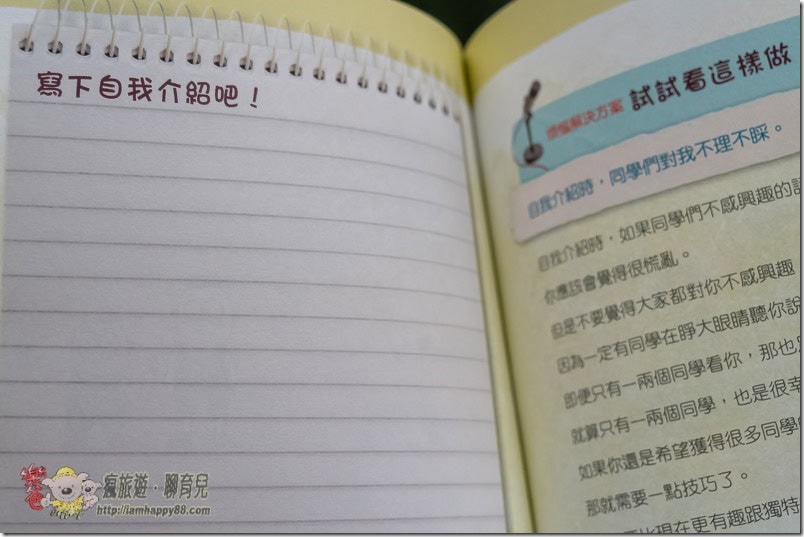 寫下自我介紹吧！
煩惱解決方案 試試看這樣做
自我介紹時，同學們對我不理不睬。
自我介紹時，如果同學們不感興趣的話
你應該會覺得很慌亂。
但是不要覺得大家都對你不感興趣
因為一定有同學在睜大眼睛聽你說
即便只有一兩個同學看你，那也
就算只有一兩個同學，也是很幸
如果你還是希望獲得很多同學
那就需要一點技巧了。
比現在更有趣跟獨特
樂爸
瘋旅遊．聊育兒
http://iamhappy88.com